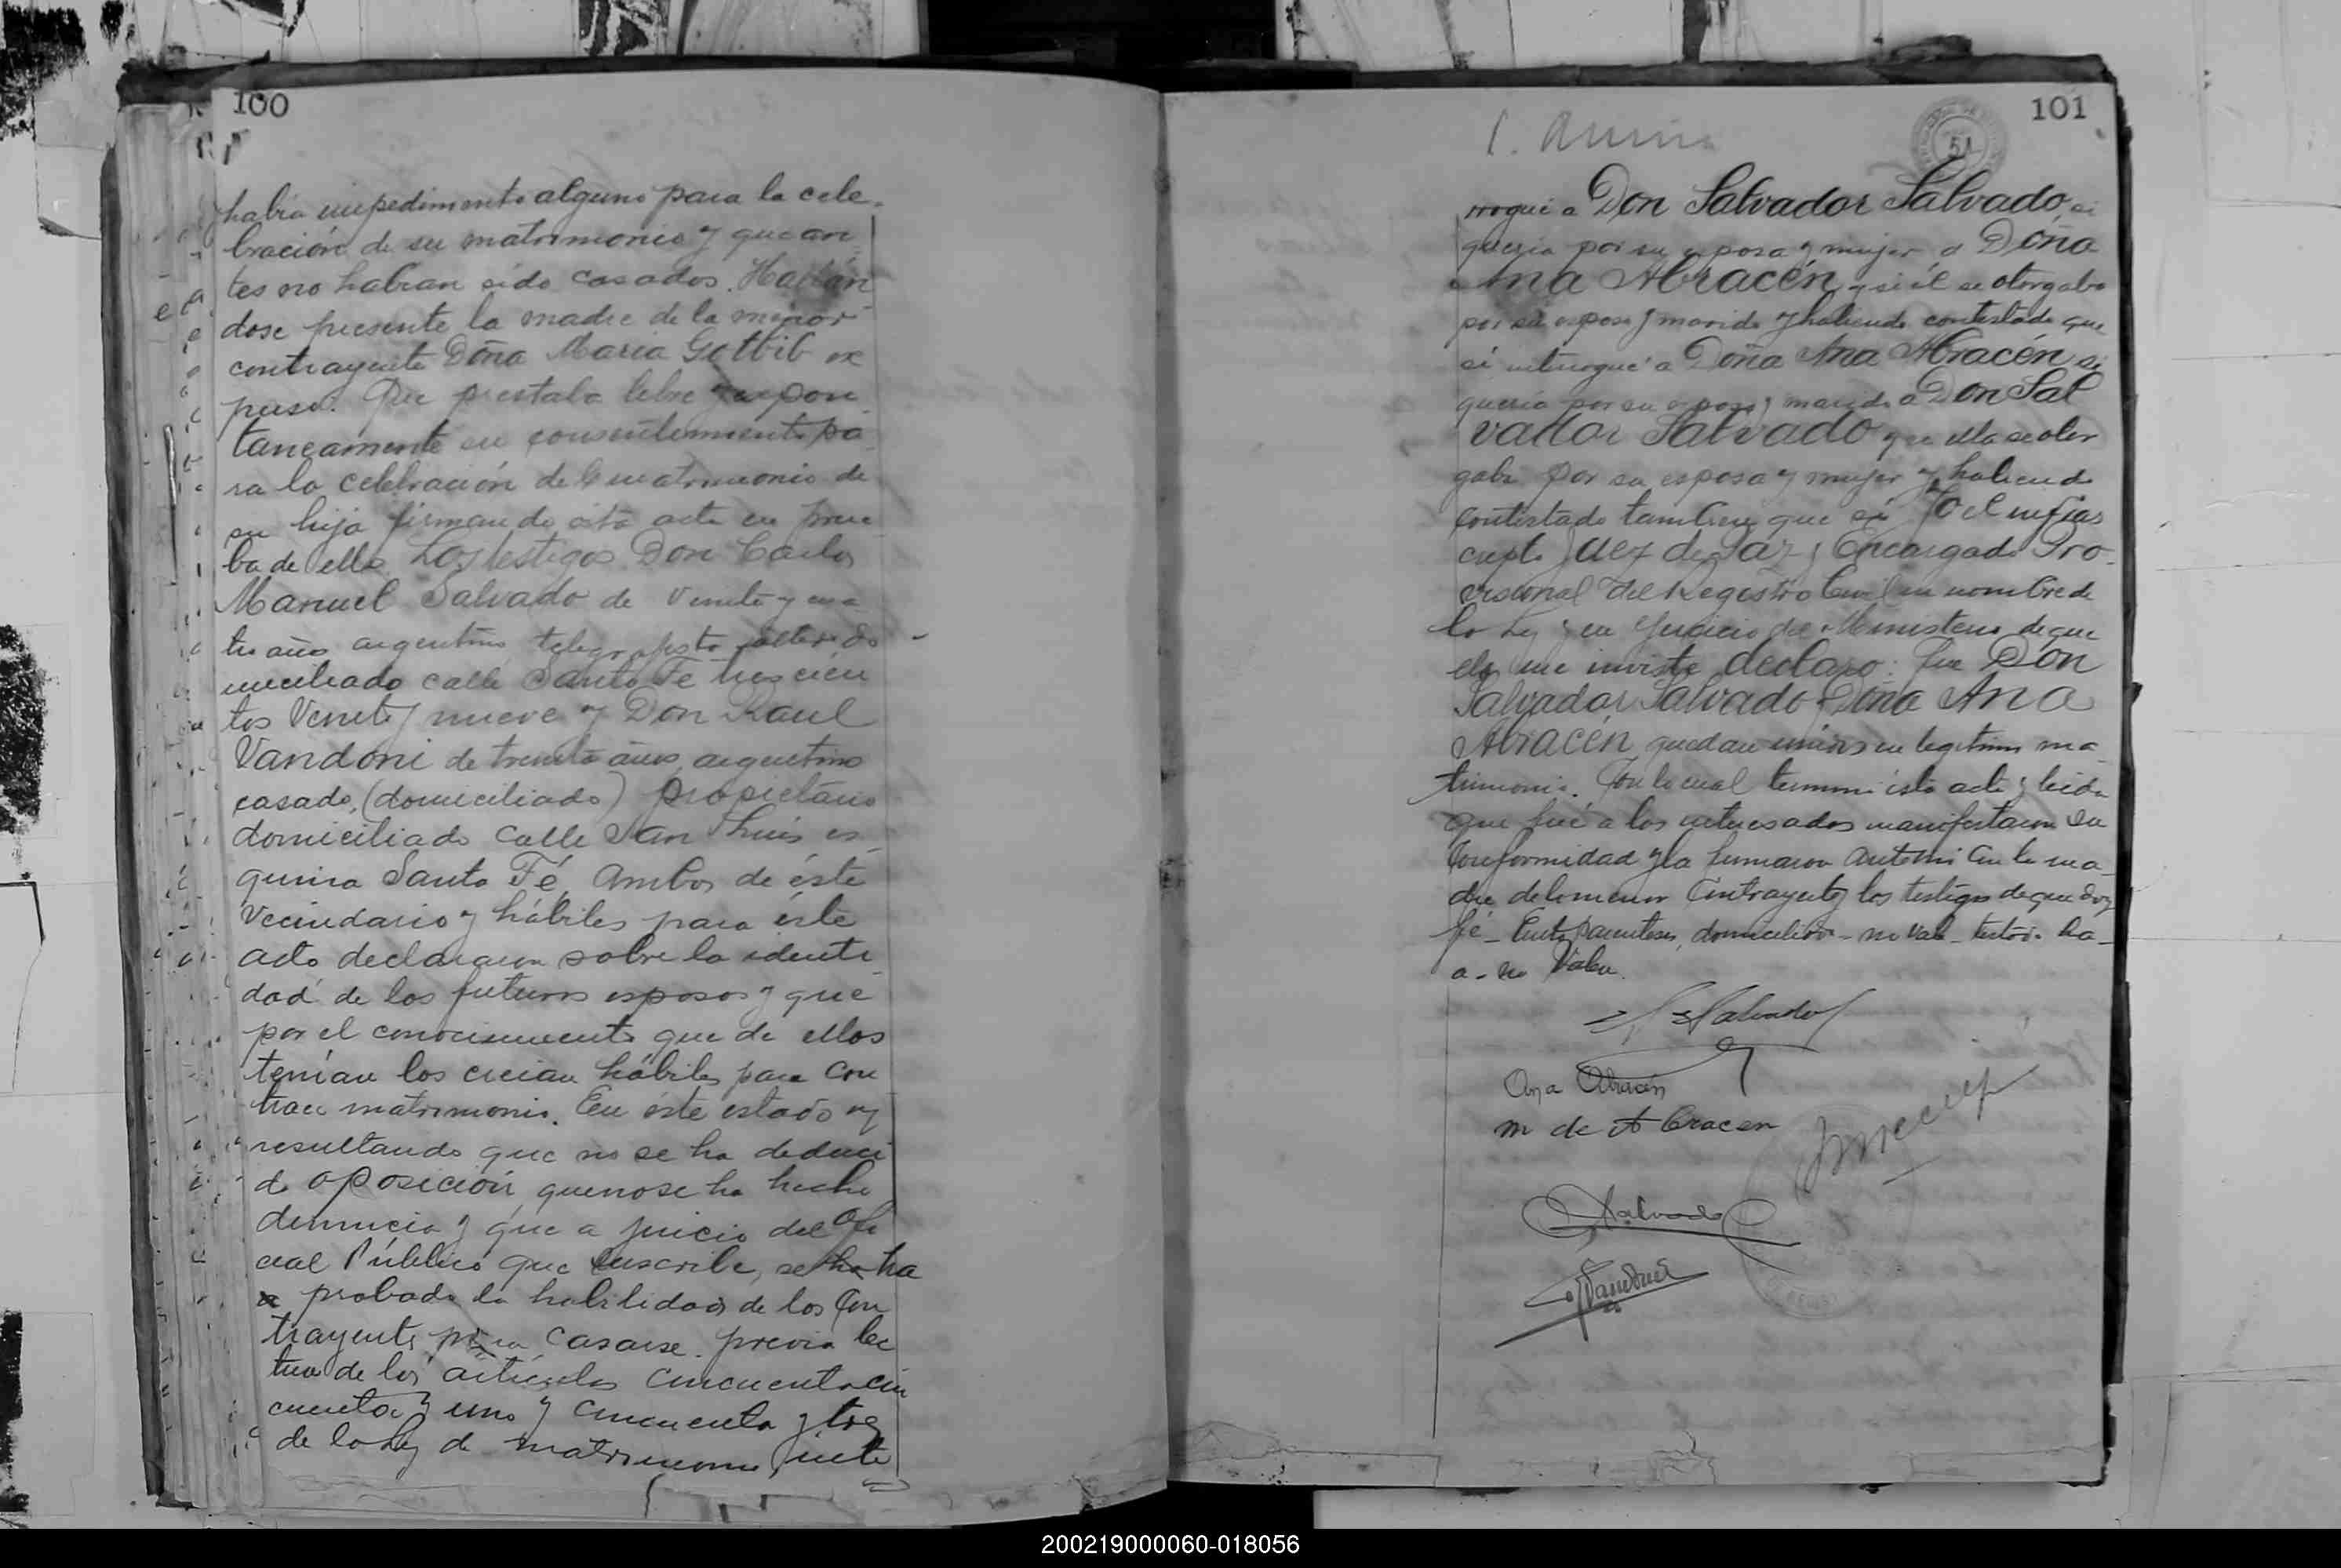 100
había impedimento alguno para la cele-
bración de su matrimonio y que an
tes no habian sido casados. Hallán
dose presente la madre de la menor
contrayente Doña Maria Gottib ex
puso: Que prestaba libre y espon
taneamente su consentimiento pa
ra la celebración del matrimonio de
su hija firmando esta acta en prue
ba de ello. Los testigos Don Carlos
Manuel Salvado de veinte y cua
tro años argentino telegrafista soltero do
miciliado calle Santa Fe trescien
tos veinte y nueve y Don Raul
Vandoni de treinta años, argentino
casado, (domiciliado) propietario
domiciliado calle San Luis es
quina Santa Fé, ambos de éste
vecindario y hábiles para éste
acto declararon sobre la identi
dad de los futuros esposos y que
por el conocimiento que de ellos
tenian los creian hábiles para con
traer matrimonio. En éste estado y
resultando que no se ha deduci
do oposición, que no se ha hecho
denuncia y que a juicio del Ofi
cial Público que suscribe, se ha ha
a probado la habilidad de los con
trayentes para casarse. previa lec
tura de los articulos cincuenta cin
cuenta y uno y cincuenta y tres
de la Ley de matrimonio, inte
101
51
rrogué a Don Salvador Salvado, si
queria por su esposa y mujer a Doña
Ana Abracén y si él se otorgaba
por su esposo y marido y habiendo contestado que
si interrogué a Doña Ana Abracén si
queria por su esposo y marido a Don Sal
vador Salvado y si ella se otor
gaba por su esposa y mujer y habiendo
contestado tambien que si Yo el infras
cripto Juez de Paz y Encargado Pro-
visional del Registro Civil en nombre de
la Ley y en ejercicio del Ministerio de que
ella me inviste declaro: Que Don
Salvador Salvado y Doña Ana
Abracén quedan unidos en legitimo ma
trimonio. Con lo cual terminó ésta acta y leida
que fué a los interesados manifestaron su
conformidad y la firmaron ante mi con la ma
dre de la menor contrayente y los testigos de que doy
fé - Entre parentesis, domiciliado - no vale - testado - ha -
a - no vale.
S. Salvado
Ana Abracén
M de Abracen
Salvado
Vandoni